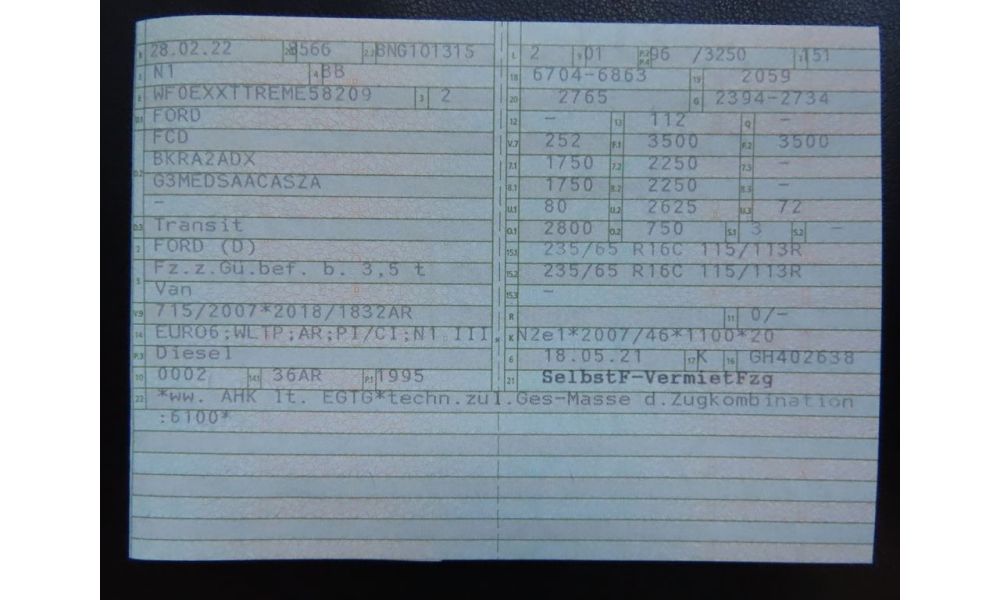 B 28.02.22 2.1 8566 2.2 BNG10131S
J N1 4 BB
E WF0EXXTTREME58209 3 2
D.1 FORD
FCD
D.2 BKRA2ADX
G3MEDSAACASZA
–
D.3 Transit
2 FORD (D)
5 Fz.z.Gü.bef. b. 3,5 t
Van
V.9 715/2007*2018/1832AR
14 EURO6;WLTP;AR;PI/CI;N1 III, N2
P.3 Diesel
10 0002 14.1 36AR P.1 1995
L 2 9 01 P.2 P.4 96 /3250 T 151
18 6704-6863 19 2059
20 2765 G 2394-2734
12 – 13 112 Q –
V.7 252 F.1 3500 F.2 3500
7.1 1750 7.2 2250 7.3 –
8.1 1750 8.2 2250 8.3 –
U.1 80 U.2 2625 U.3 72
O.1 2800 O.2 750 S.1 3 S.2 –
15.1 235/65 R16C 115/113R
15.2 235/65 R16C 115/113R
15.3 –
R 11 0/–
K e1*2007/46*1100*20
6 18.05.21 17 K 16 GH402638
21 SelbstF-VermietFzg
22 *ww. AHK lt. EGTG*techn.zul.Ges-Masse d.Zugkombination
:6100*